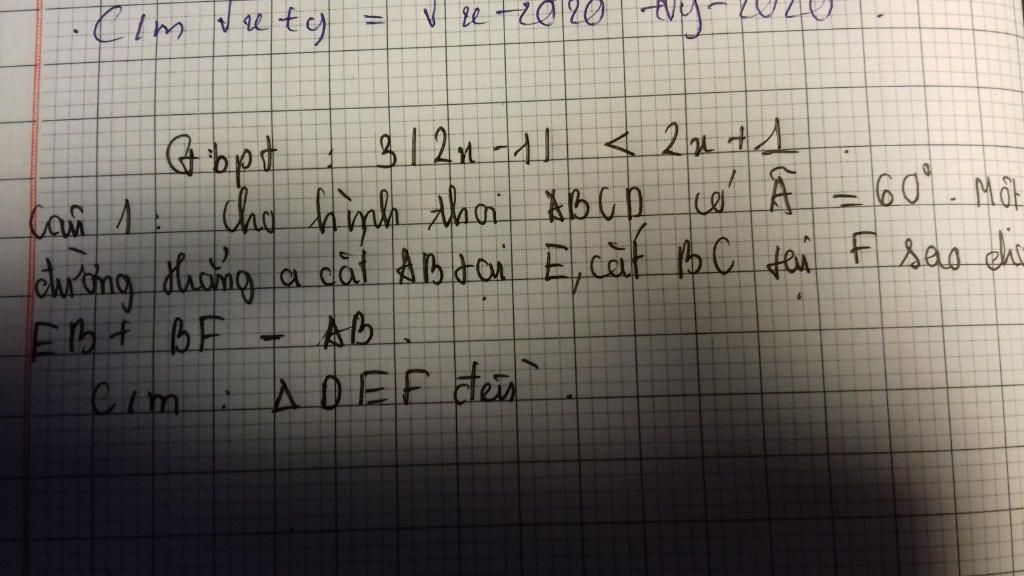 . C/m √x+y = √x-2020 + √y-2020 .
G bpt : 3|2x-1| < 2x+1 .
Câu 1 : Cho hình thoi ABCD có Â = 60°. Một
đường thẳng a cắt AB tại E, cắt BC tại F sao cho
EB + BF = AB .
C/m : Δ DEF đều .